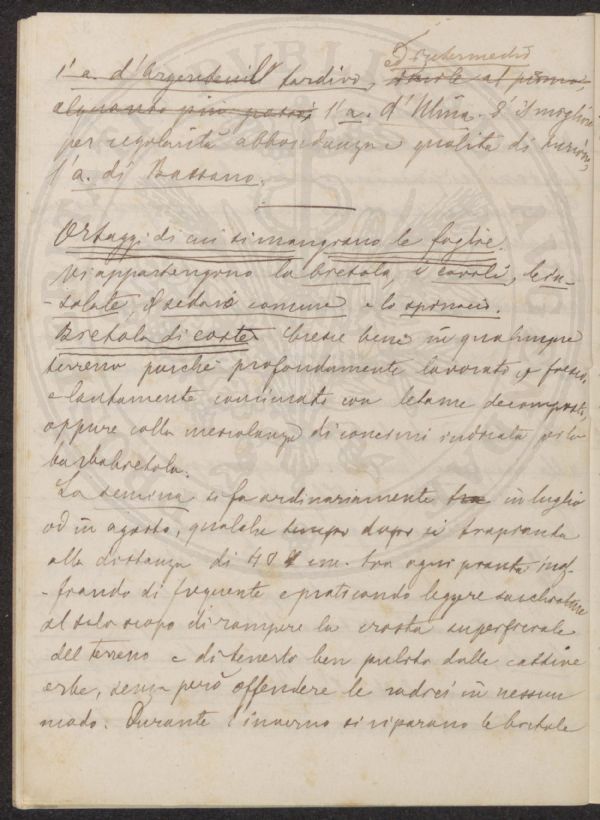 D'intermedio
l'a. d'Argenteuil tardivo,
l'a. d'Ulma. È il migliore
per regolarità abbondanza e qualità di turioni,
l'a. di Bassano.
Ortaggi di cui si mangiano le foglie.
Vi appartengono la bietola, i cavoli, le in-
-salate, il sedano comune e lo spinacio.
Bietola di coste Cresce bene in qualunque
terreno purché profondamente lavorato e fresco
e lautamente concimato con letame decomposto,
oppure colla mescolanza di concimi indicata per la
barbabietola.
La semina si fa ordinariamente tra in luglio
od in agosto, qualche tempo dopo si trapianta
alla distanza di 40 cm. tra ogni pianta inaf-
-fiando di frequente e praticando leggere sarchiature
al solo scopo di rompere la crosta superficiale
del terreno e di tenerlo ben pulito dalle cattive
erbe, senza però offendere le radici in nessun
modo. Durante l'inverno si riparano le bietole